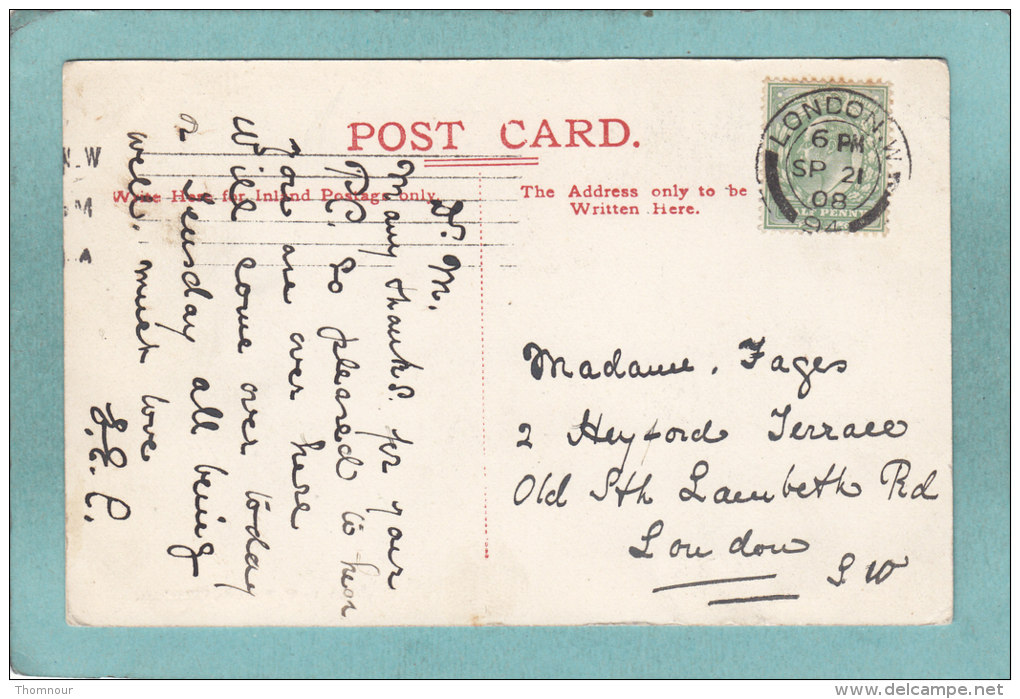 POST CARD.
Write Here for Inland Postage only.
The Address only to be
Written Here.
LONDON.W.
6 PM
SP 21
08
94
HALF PENNY
N.W
M
A
D. M.
Many thanks. for your
P.C. So pleased to hear
You are over here
Will come over today
or Teusday all being
well. much love
E.E.C.
Madame. Fages
2 Heyford Terrace
Old Sth Lambeth Rd
London
S W
Thomnour
www.delcampe.net